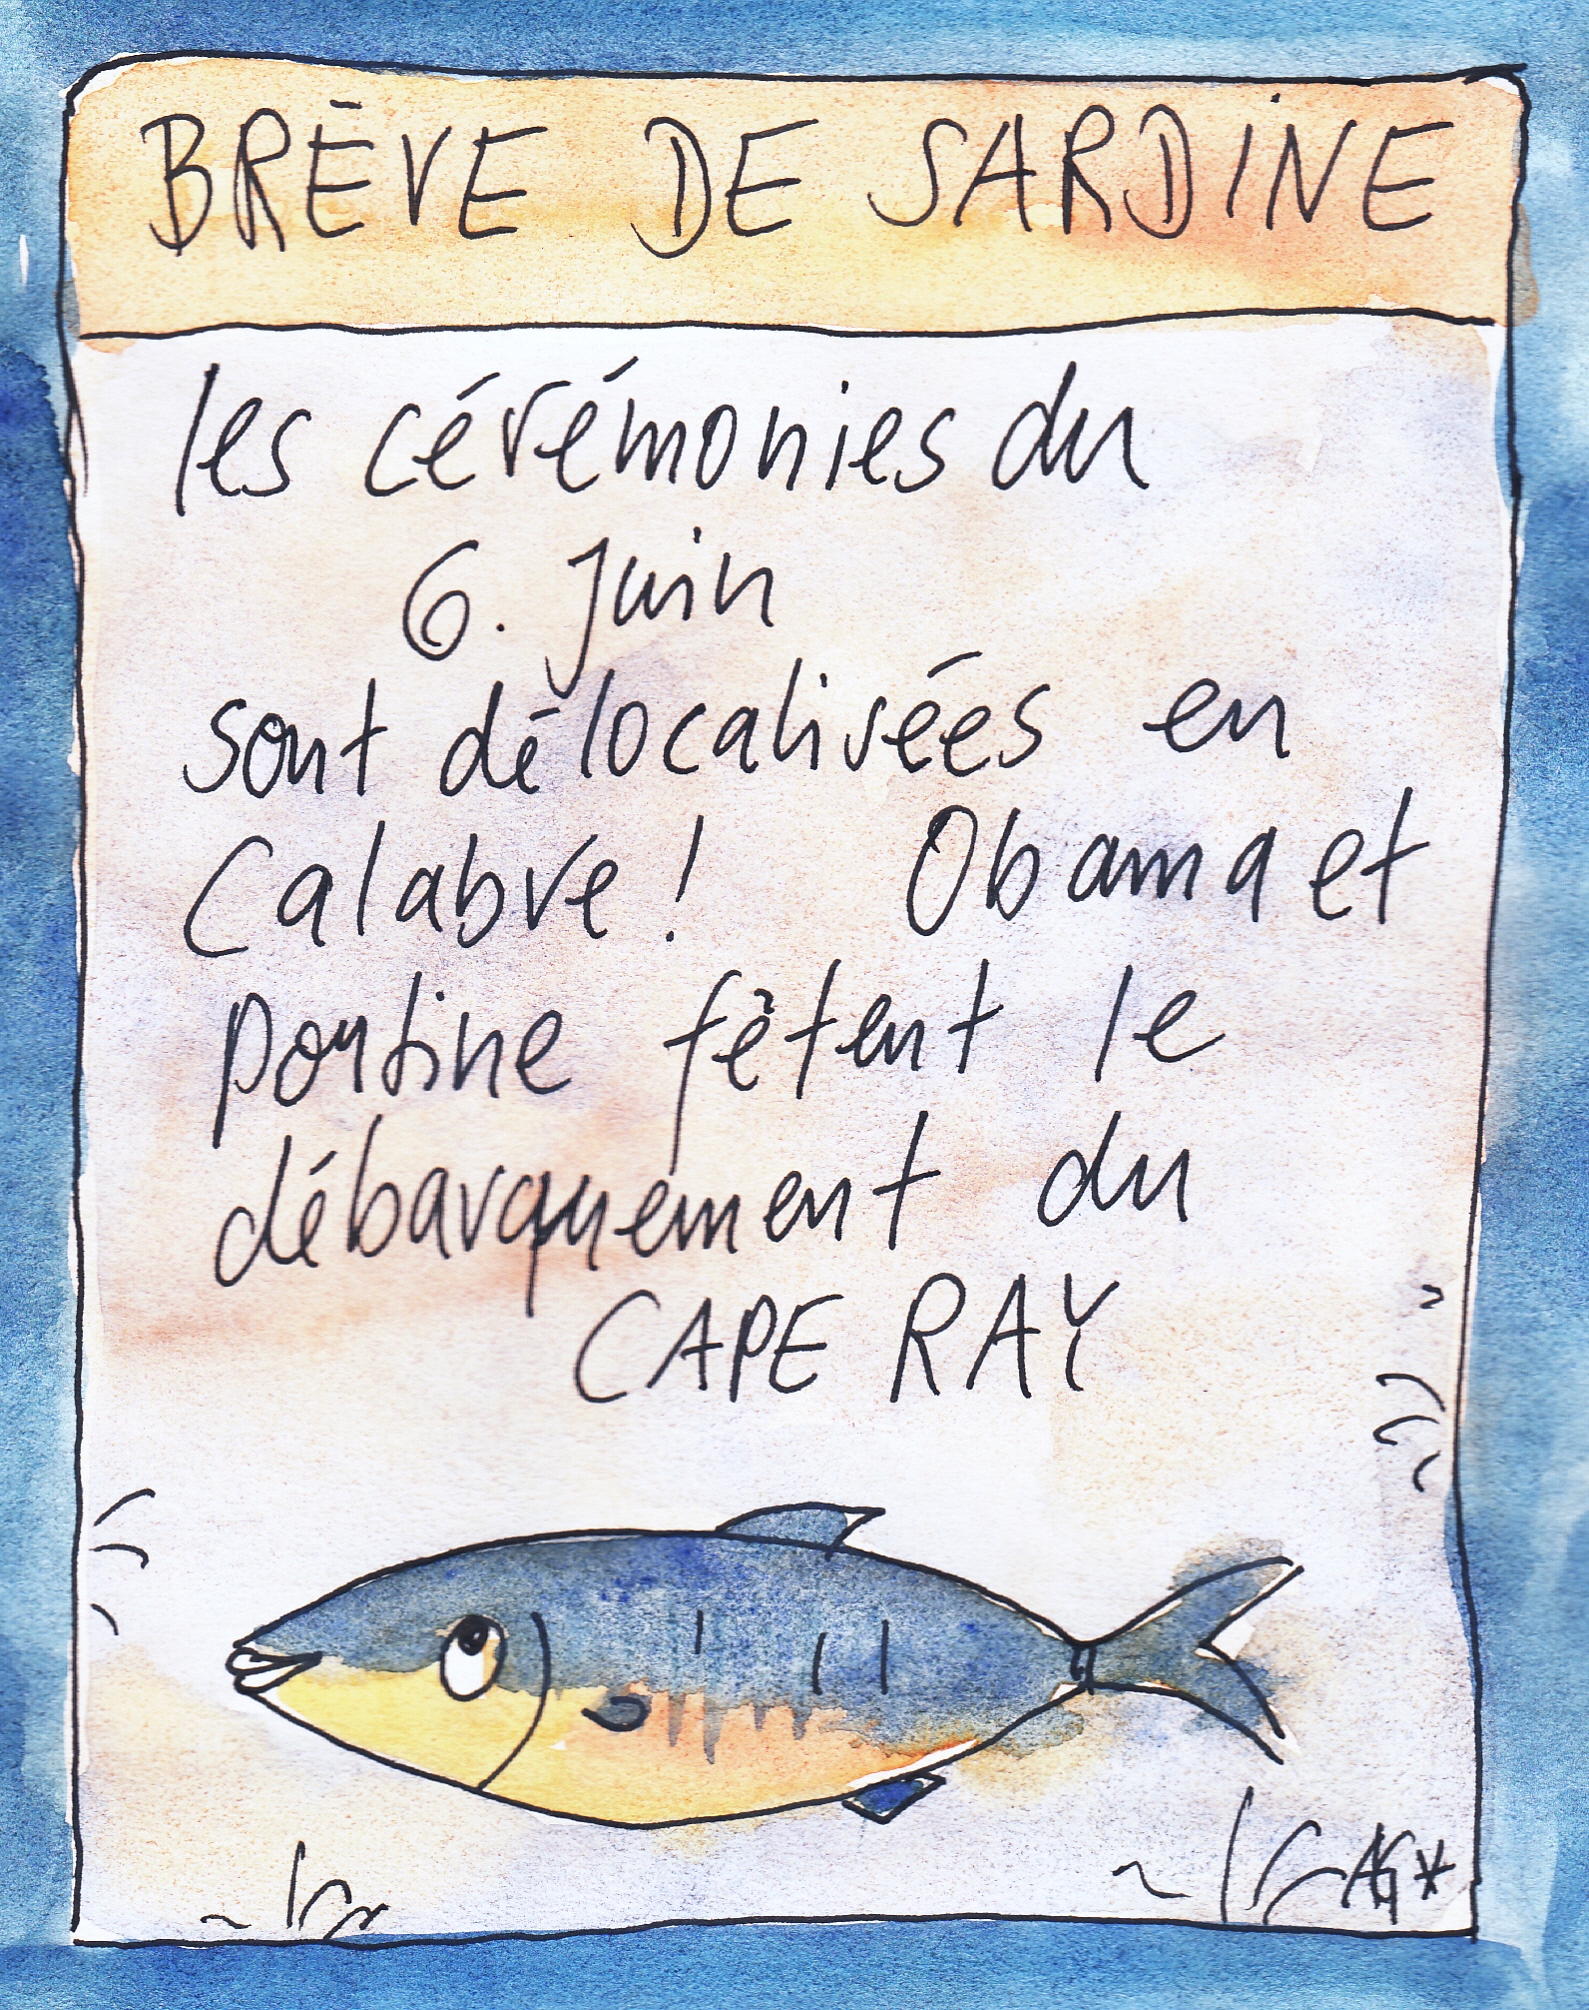 BRÈVE DE SARDINE
les cérémonies du
6. Juin
sont délocalisées en
Calabre! Obama et
poutine fêtent le
débarquement du
CAPE RAY